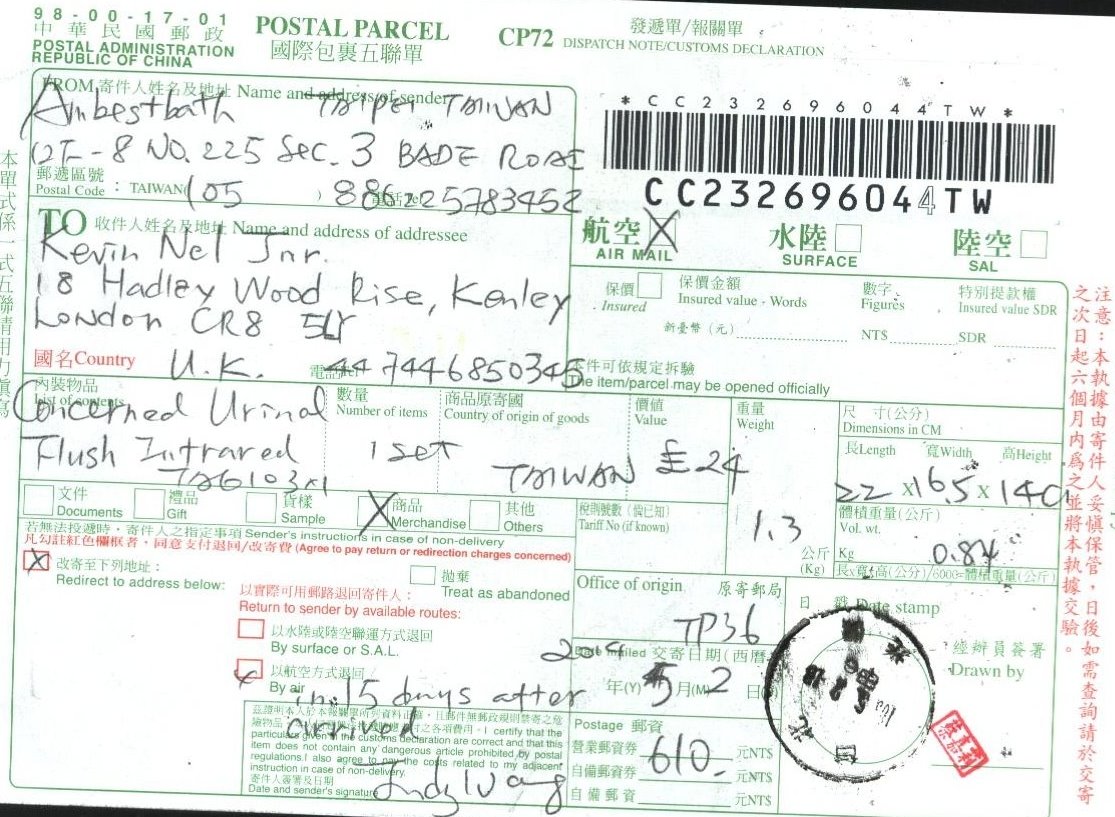 98-00-17-01
中華民國郵政
POSTAL ADMINISTRATION
REPUBLIC OF CHINA
POSTAL PARCEL
國際包裹五聯單
CP72
發遞單/報關單
DISPATCH NOTE/CUSTOMS DECLARATION
FROM 寄件人姓名及地址 Name and address of sender
Ambestbath TAIPEI TAIWAN
12F-8 NO.225 Sec. 3 BADE ROAD
郵遞區號
Postal Code : TAIWAN( 105 ) 886225783452
*CC232696044TW*
CC232696044TW
TO 收件人姓名及地址 Name and address of addressee
Kevin Nel Jnr.
18 Hadley Wood Rise, Kenley
London CR8 5LY
國名Country U.K. 447446850345
航空 X
AIR MAIL
水陸
SURFACE
陸空
SAL
保價
Insured
保價金額
Insured value - Words
數字
Figures
特別提款權
Insured value SDR
新臺幣（元）
NT$
SDR
本件可依規定拆驗
The item/parcel may be opened officially
內裝物品
List of contents
數量
Number of items
商品原寄國
Country of origin of goods
價值
Value
重量
Weight
尺 寸(公分)
Dimensions in CM
長Length 寬Width 高Height
Concerned Urinal
Flush Infrared
1 set
TAIWAN
£24
22 x 16.5 x 14
1.3
公斤
(Kg)
體積重量(公斤)
Vol. wt.
Kg
長x寬x高(公分)/6000=體積重量(公斤)
文件
Documents
禮品
Gift
貨樣
Sample
X 商品
Merchandise
其他
Others
稅則號數（倘已知）
Tariff No (if known)
若無法投遞時，寄件人之指定事項 Sender's instructions in case of non-delivery
凡勾註紅色欄框者，同意支付退回/改寄費 (Agree to pay return or redirection charges concerned)
X 改寄至下列地址：
Redirect to address below:
拋棄
Treat as abandoned
以實際可用郵路退回寄件人：
Return to sender by available routes:
以水陸或陸空聯運方式退回
By surface or S.A.L.
以航空方式退回
By air
in 15 days after
arrived
certify that the
particulars given in the customs declaration are correct and that this
item does not contain any dangerous article prohibited by postal
regulations.I also agree to pay the costs related to my adjacent
instruction in case of non-delivery.
寄件人簽署及日期
Date and sender's signature
Office of origin 原寄郵局
TP36
Date mailed 交寄日期(西曆)
年(Y) 5 月(M) 2 日
Postage 郵資
營業郵資券 610. 元NT$
自備郵資券 元NT$
自備郵資 元NT$
日 戳 Date stamp
經辦員簽署
Drawn by
本單式係一式五聯請用力填寫
注意：本執據由寄件人妥慎保管，日後如需查詢請於交寄
之次日起六個月內為之並將本執據交驗。